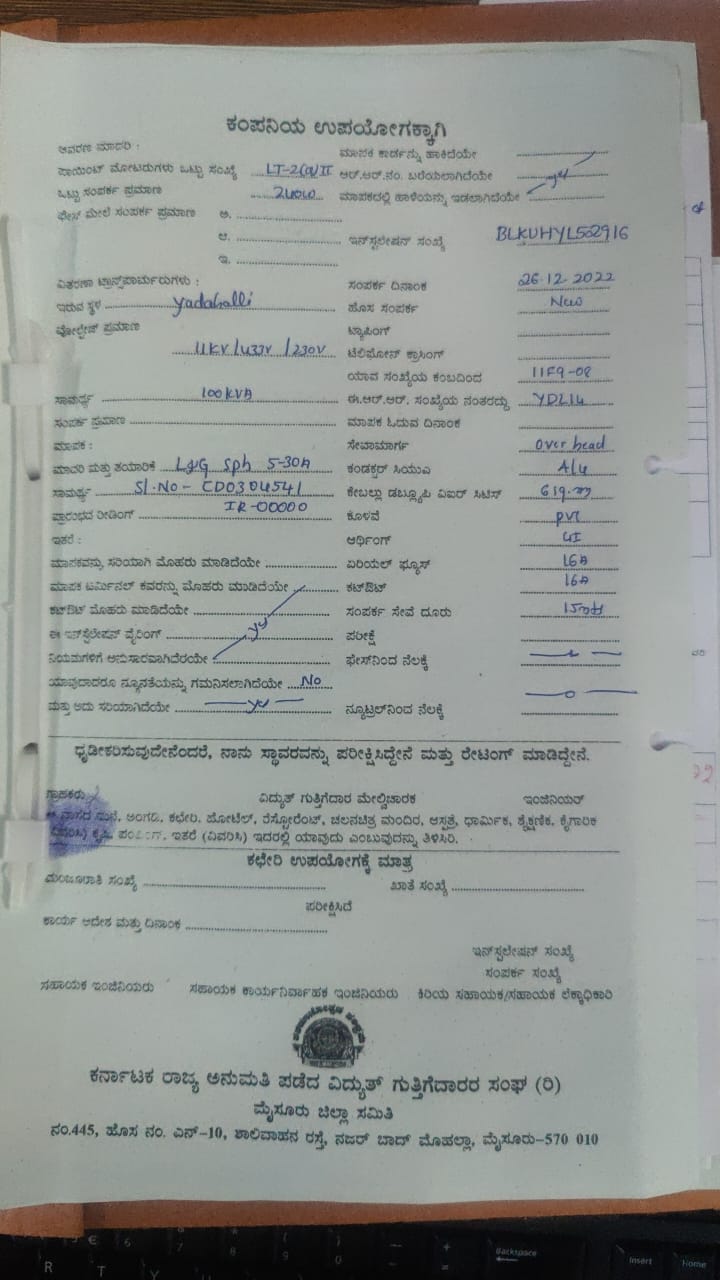 ಕಂಪನಿಯ ಉಪಯೋಗಕ್ಕಾಗಿ
ಆವರಣ ಮಾದರಿ : ಮಾಪಕ ಕಾರ್ಡನ್ನು ಹಾಕಿದೆಯೇ
ಪಾಯಿಂಟ್ ಮೋಟರುಗಳು ಒಟ್ಟು ಸಂಖ್ಯೆ LT-2(a)II ಆರ್.ಆರ್.ನಂ. ಬರೆಯಲಾಗಿದೆಯೇ yes
ಒಟ್ಟು ಸಂಪರ್ಕ ಪ್ರಮಾಣ 240w ಮಾಪಕದಲ್ಲಿ ಹಾಳೆಯನ್ನು ಇಡಲಾಗಿದೆಯೇ
ಫೇಸ್ ಮೇಲೆ ಸಂಪರ್ಕ ಪ್ರಮಾಣ ಅ.
ಆ. ಇನ್‌ಸ್ಟಲೇಷನ್ ಸಂಖ್ಯೆ BLKUHYL502916
ಇ.
ವಿತರಣಾ ಟ್ರಾನ್ಸ್‌ಫಾರ್ಮರುಗಳು : ಸಂಪರ್ಕ ದಿನಾಂಕ 26.12.2022
ಇರುವ ಸ್ಥಳ Yadahalli ಹೊಸ ಸಂಪರ್ಕ New
ವೋಲ್ಟೇಜ್ ಪ್ರಮಾಣ ಟ್ಯಾಪಿಂಗ್
11KV/433V/230V ಟೆಲಿಫೋನ್ ಕ್ರಾಸಿಂಗ್
ಯಾವ ಸಂಖ್ಯೆಯ ಕಂಬದಿಂದ 11F9-08
ಸಾಮರ್ಥ್ಯ 100KVA ಈ.ಆರ್.ಆರ್. ಸಂಖ್ಯೆಯ ನಂತರದ್ದು YDL14
ಸಂಪರ್ಕ ಪ್ರಮಾಣ ಮಾಪಕ ಓದುವ ದಿನಾಂಕ
ಮಾಪಕ : ಸೇವಾಮಾರ್ಗ Over head
ಮಾದರಿ ಮತ್ತು ತಯಾರಿಕೆ L&G Sph 5-30A ಕಂಡಕ್ಟರ್ ಸಿಯುಎ Alu
ಸಾಮರ್ಥ್ಯ Sl.No- CD0304541 ಕೇಬಲ್ಲು ಡಬ್ಲ್ಯೂಪಿ ವಿಐರ್ ಸಿಟಿಸ್
ಪ್ರಾರಂಭದ ರೀಡಿಂಗ್ IR-00000 ಕೊಳವೆ pvc
ಇತರೆ : ಅರ್ಥಿಂಗ್ GI
ಮಾಪಕವನ್ನು ಸರಿಯಾಗಿ ಮೊಹರು ಮಾಡಿದೆಯೇ ಏರಿಯಲ್ ಫ್ಯೂಸ್ 16A
ಮಾಪಕ ಟರ್ಮಿನಲ್ ಕವರನ್ನು ಮೊಹರು ಮಾಡಿದೆಯೇ ಕಟ್‌ಔಟ್ 16A
ಕಟ್‌ಔಟ್ ಮೊಹರು ಮಾಡಿದೆಯೇ ಸಂಪರ್ಕ ಸೇವೆ ದೂರು 15mt
ಈ ಇನ್‌ಸ್ಟಲೇಷನ್ ವೈರಿಂಗ್ yes ಪರೀಕ್ಷೆ
ನಿಯಮಗಳಿಗೆ ಅನುಸಾರವಾಗಿದೆರೆಯೇ ಫೇಸ್‌ನಿಂದ ನೆಲಕ್ಕೆ
ಯಾವುದಾದರೂ ನ್ಯೂನತೆಯನ್ನು ಗಮನಿಸಲಾಗಿದೆಯೇ No
ಮತ್ತು ಅದು ಸರಿಯಾಗಿದೆಯೇ yes ನ್ಯೂಟ್ರಲ್‌ನಿಂದ ನೆಲಕ್ಕೆ
ಧೃಡೀಕರಿಸುವುದೇನೆಂದರೆ, ನಾನು ಸ್ಥಾವರವನ್ನು ಪರೀಕ್ಷಿಸಿದ್ದೇನೆ ಮತ್ತು ರೇಟಿಂಗ್ ಮಾಡಿದ್ದೇನೆ.
ಗ್ರಾಹಕರು ವಿದ್ಯುತ್ ಗುತ್ತಿಗೆದಾರ ಮೇಲ್ವಿಚಾರಕ ಇಂಜಿನಿಯರ್
ವಾಸದ ಮನೆ, ಅಂಗಡಿ, ಕಛೇರಿ, ಹೋಟೆಲ್, ರೆಸ್ಟೋರೆಂಟ್, ಚಲನಚಿತ್ರ ಮಂದಿರ, ಆಸ್ಪತ್ರೆ, ಧಾರ್ಮಿಕ, ಶೈಕ್ಷಣಿಕ, ಕೈಗಾರಿಕ
(ವಿವರಿಸಿ) ಕೃಷಿ, ಪಂಪಿಂಗ್, ಇತರೆ (ವಿವರಿಸಿ) ಇದರಲ್ಲಿ ಯಾವುದು ಎಂಬುವುದನ್ನು ತಿಳಿಸಿರಿ.
ಕಛೇರಿ ಉಪಯೋಗಕ್ಕೆ ಮಾತ್ರ
ಮಂಜೂರಾತಿ ಸಂಖ್ಯೆ ಖಾತೆ ಸಂಖ್ಯೆ
ಪರೀಕ್ಷಿಸಿದೆ
ಕಾರ್ಯ ಆದೇಶ ಮತ್ತು ದಿನಾಂಕ
ಇನ್‌ಸ್ಟಲೇಷನ್ ಸಂಖ್ಯೆ
ಸಂಪರ್ಕ ಸಂಖ್ಯೆ
ಸಹಾಯಕ ಇಂಜಿನಿಯರು ಸಹಾಯಕ ಕಾರ್ಯನಿರ್ವಾಹಕ ಇಂಜಿನಿಯರು ಕಿರಿಯ ಸಹಾಯಕ/ಸಹಾಯಕ ಲೆಕ್ಕಾಧಿಕಾರಿ
ಕರ್ನಾಟಕ ರಾಜ್ಯ ಅನುಮತಿ ಪಡೆದ ವಿದ್ಯುತ್ ಗುತ್ತಿಗೆದಾರರ ಸಂಘ (ರಿ)
ಮೈಸೂರು ಜಿಲ್ಲಾ ಸಮಿತಿ
ನಂ.445, ಹೊಸ ನಂ. ಎನ್-10, ಶಾಲಿವಾಹನ ರಸ್ತೆ, ನಜರ್ ಬಾದ್ ಮೊಹಲ್ಲಾ, ಮೈಸೂರು-570 010
Backspace
Insert Home
R T Y